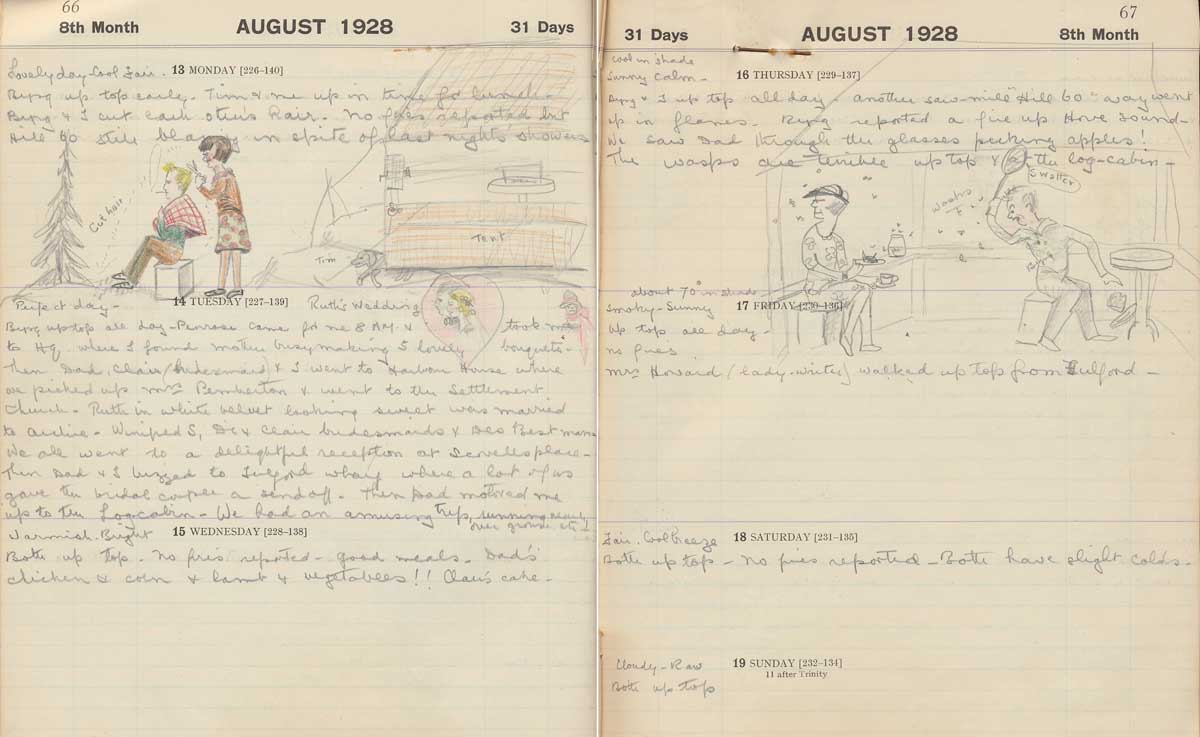 66
8th Month
AUGUST 1928
31 Days
Lovely day - Cool Fair.
13 MONDAY [226–140]
Byng up top early. Tim & me up in time for lunch.
Byng & I cut each other's hair. No fires reported but
Hill 60 still blazing in spite of last night's showers
Cut hair
Tim
Tent
Perfect day -
14 TUESDAY [227–139]
Ruth's Wedding
Byng up top all day - Penrose came for me 8 A.M. & took me
to HQ. where I found mother busy making 5 lovely bouquets -
Then Dad, Clair (bridesmaid) & I went to Harbour House where
we picked up Mrs Pemberton & went to the Settlement
Church - Ruth in white velvet looking sweet was married
to - Winifred S, & Clair bridesmaids & Des Best man
We all went to a delightful reception at Scovells place -
Then Dad & I buzzed to Fulford wharf where a lot of us
gave the bridal couple a send off. Then Dad motored me
up to the Log-cabin - We had an amusing trip, running nearly
over grouse etc -!
Warmish. Bright
15 WEDNESDAY [228–138]
Both up top. No fires reported - good meals. Dad's
chicken & corn & lamb & vegetables!! Clair's cake -
67
31 Days
AUGUST 1928
8th Month
cool in shade
Sunny Calm -
16 THURSDAY [229–137]
Byng & I up top all day - another saw-mill "Hill 60" way went
up in flames. Byng reported a fire up Howe Sound -
We saw Dad through the glasses picking apples!
The wasps are terrible up top & at the log-cabin -
Swatter
Wasps
Byng
about 70° in shade
Smoky - Sunny
17 FRIDAY [230–136]
Up top all day -
no fires
Mrs Howard (lady-writer) walked up top from Fulford -
Fair. Cool breeze
18 SATURDAY [231–135]
Both up top - no fires reported - Both have slight colds.
Cloudy - Raw
19 SUNDAY [232–134]
11 after Trinity
Both up top